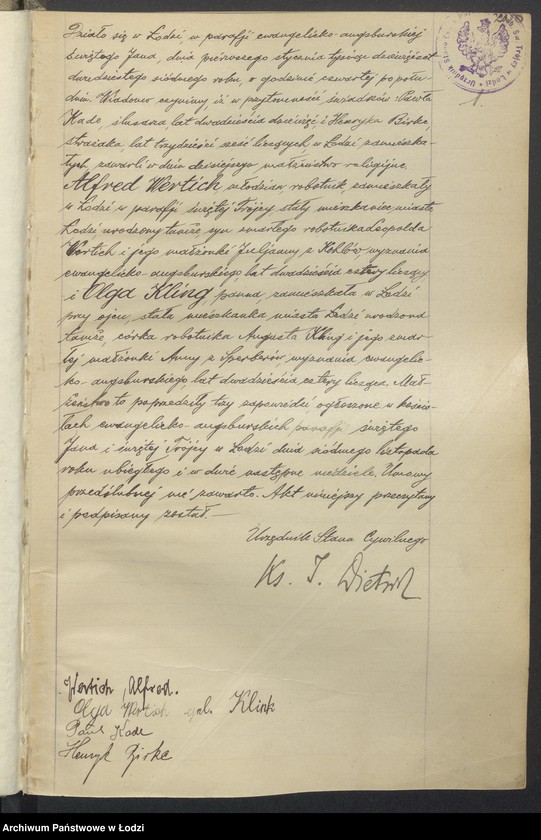 Działo się w Łodzi, w parafji ewangelicko-augsburskiej
świętego Jana, dnia pierwszego stycznia tysiąc dziewięćset
dwudziestego siódmego roku, o godzinie czwartej po połu-
dniu. Wiadomo czynimy, iż w przytomności świadków: Pawła
Kade, ślusarza, lat dwadzieścia dziewięć, i Henryka Birke,
strażaka, lat trzydzieści sześć liczących, w Łodzi zamieszka-
łych, zawarli w dniu dzisiejszym małżeństwo religijne
Alfred Wertich, młodzian, robotnik, zamieszkały
w Łodzi w parafji świętej Trójcy stały mieszkaniec miasta
Łodzi urodzony tamże, syn zmarłego robotnika Leopolda
Wertich i jego małżonki Juljanny z Kohlów, wyznania
ewangelicko-augsburskiego, lat dwadzieścia cztery liczący
i Olga Kling, panna, zamieszkała w Łodzi
przy ojcu, stała mieszkanka miasta Łodzi urodzona
tamże, córka robotnika Augusta Kling i jego zmar-
łej małżonki Anny z Sperberów, wyznania ewangelic-
ko-augsburskiego, lat dwadzieścia cztery licząca. Mał-
żeństwo to poprzedziły trzy zapowiedzi ogłoszone w kościo-
łach ewangelicko-augsburskich parafji świętego
Jana i świętej Trójcy w Łodzi dnia siódmego listopada
roku ubiegłego i w dwie następne niedziele. Umowy
przedślubnej nie zawarto. Akt niniejszy przeczytany
i podpisany został.—
Urzędnik Stanu Cywilnego
Ks. J. Dietrich
Wertich, Alfred.
Olga Wertich gal. Klink
Paul Kade
Henryk Birke
Archiwum Państwowe w Łodzi